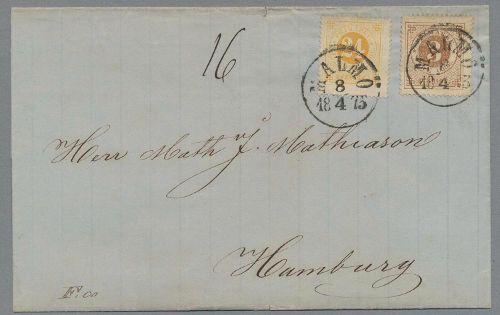 16
24
MALMÖ
8
18 4 75
MALMÖ
18 4
Herr Math J. Mathiason
Hamburg